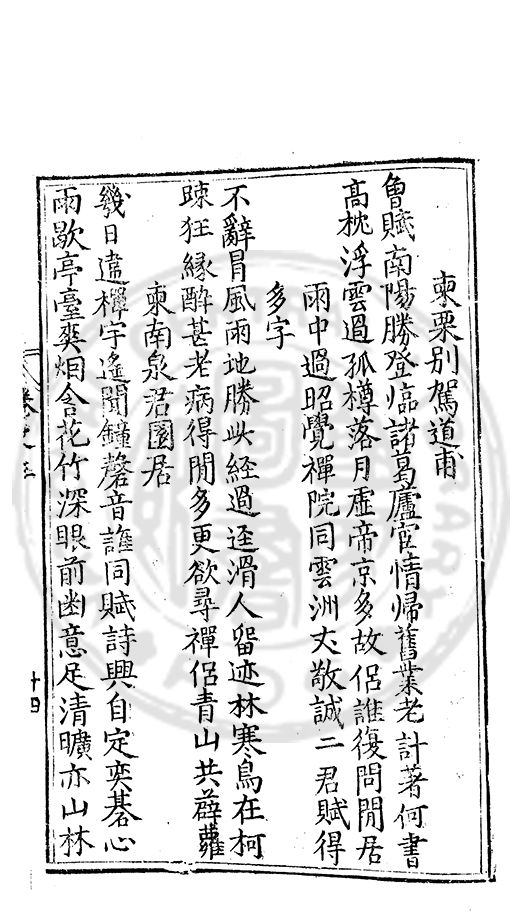 柬栗別駕道甫
魯賦南陽勝登臨諸葛廬宦情歸舊業老計著何書
高枕浮雲過孤樽落月虛帝京多故侶誰復問閒居
雨中過昭覺禪院同雲洲大敬誠二君賦得
多字
不辭冒風雨地勝此經過逕滑人留迹林寒鳥在柯
踈狂緣醉甚老病得閒多更欲尋禪侶青山共薜蘿
柬南泉君園居
幾日違禪宇遙聞鐘磬音誰同賦詩興自定奕棊心
雨歇亭臺爽烟含花竹深眼前幽意足清曠亦山林
卷之三
十四